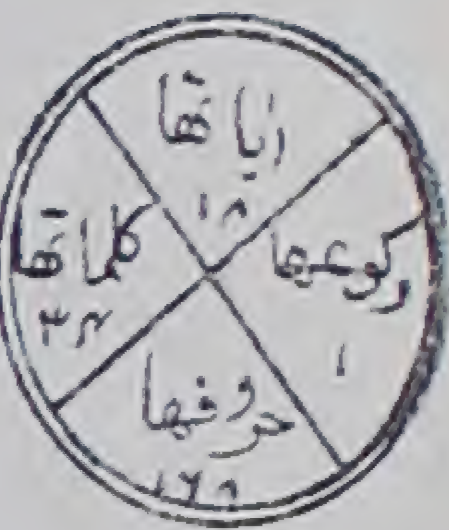 اياتها
١٨
ركوعها
١
كلماتها
حروفها